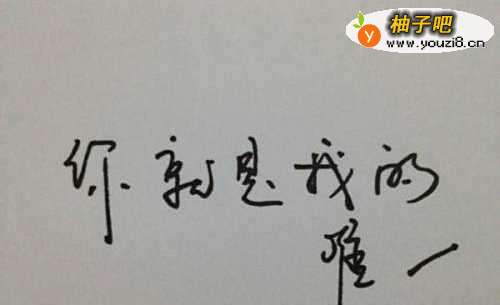 柚子吧
www.youzi8.cn
你就是我的
唯一